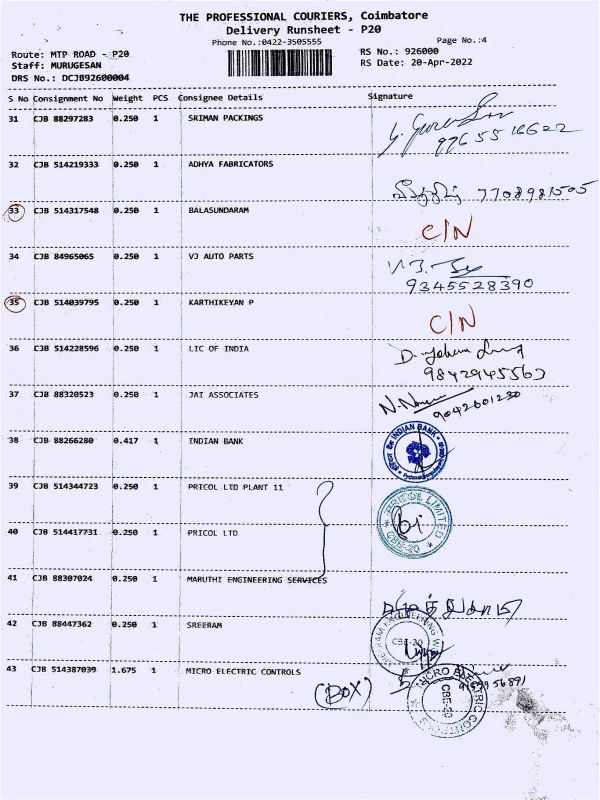 THE PROFESSIONAL COURIERS, Coimbatore
Delivery Runsheet - P20
Phone No.:0422-3505555
Page No.:4
Route: MTP ROAD - P20
RS No.: 926000
Staff: MURUGESAN
RS Date: 20-Apr-2022
DRS No.: DCJB92600004
S No Consignment No Weight PCS Consignee Details Signature
31 CJB 88297283 0.250 1 SRIMAN PACKINGS
32 CJB 514219333 0.250 1 ADHYA FABRICATORS
7708981505
33 CJB 514317548 0.250 1 BALASUNDARAM
C/N
34 CJB 84965065 0.250 1 VJ AUTO PARTS
9345528390
35 CJB 514039795 0.250 1 KARTHIKEYAN P
C/N
36 CJB 514228596 0.250 1 LIC OF INDIA
37 CJB 88320523 0.250 1 JAI ASSOCIATES
9042601230
38 CJB 88266280 0.417 1 INDIAN BANK
INDIAN BANK
39 CJB 514344723 0.250 1 PRICOL LTD PLANT II
PRICOL LIMITED
CBE-20
40 CJB 514417731 0.250 1 PRICOL LTD
41 CJB 88307024 0.250 1 MARUTHI ENGINEERING SERVICES
42 CJB 88447362 0.250 1 SREERAM
CBE-20
43 CJB 514387039 1.675 1 MICRO ELECTRIC CONTROLS
(BOX)
MICRO ELECTRIC CONTROLS
CBE-20